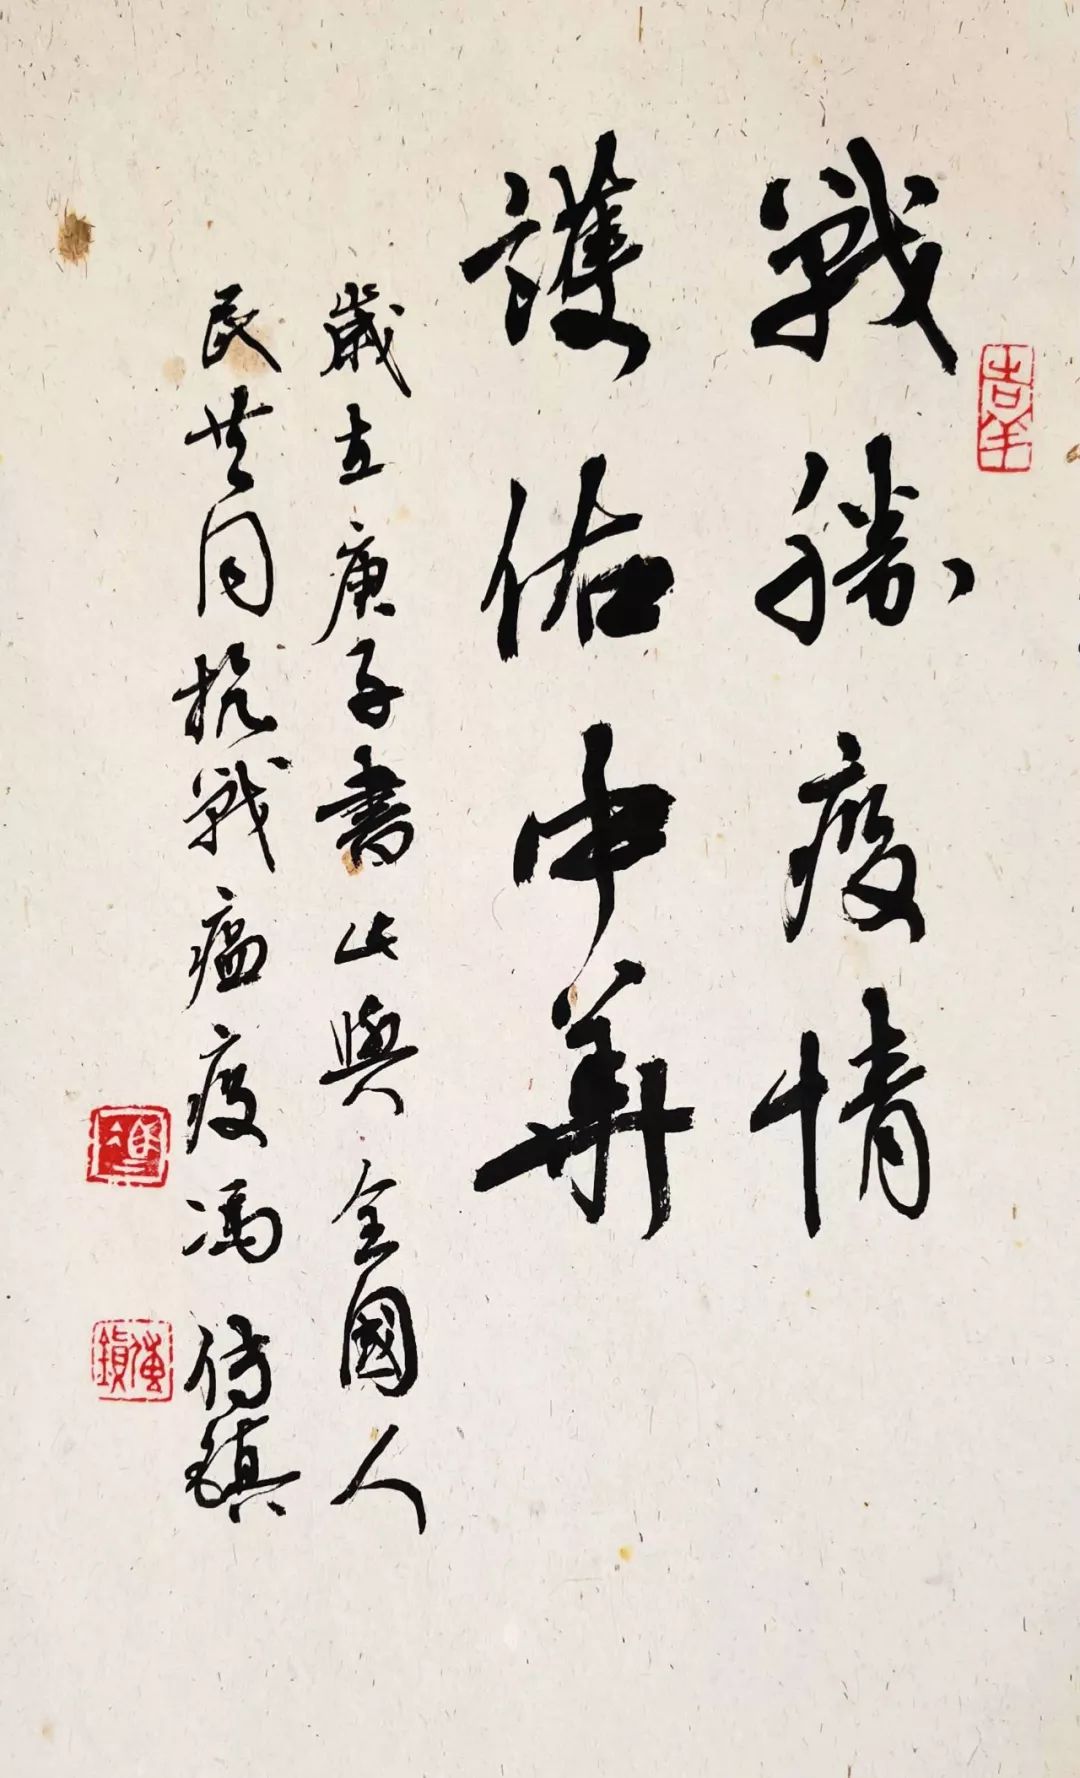 戰勝疫情
護佑中華
歲在庚子書此與全國人
民共同抗戰瘟疫馮傳鎮
吉羊
馮
傳鎮